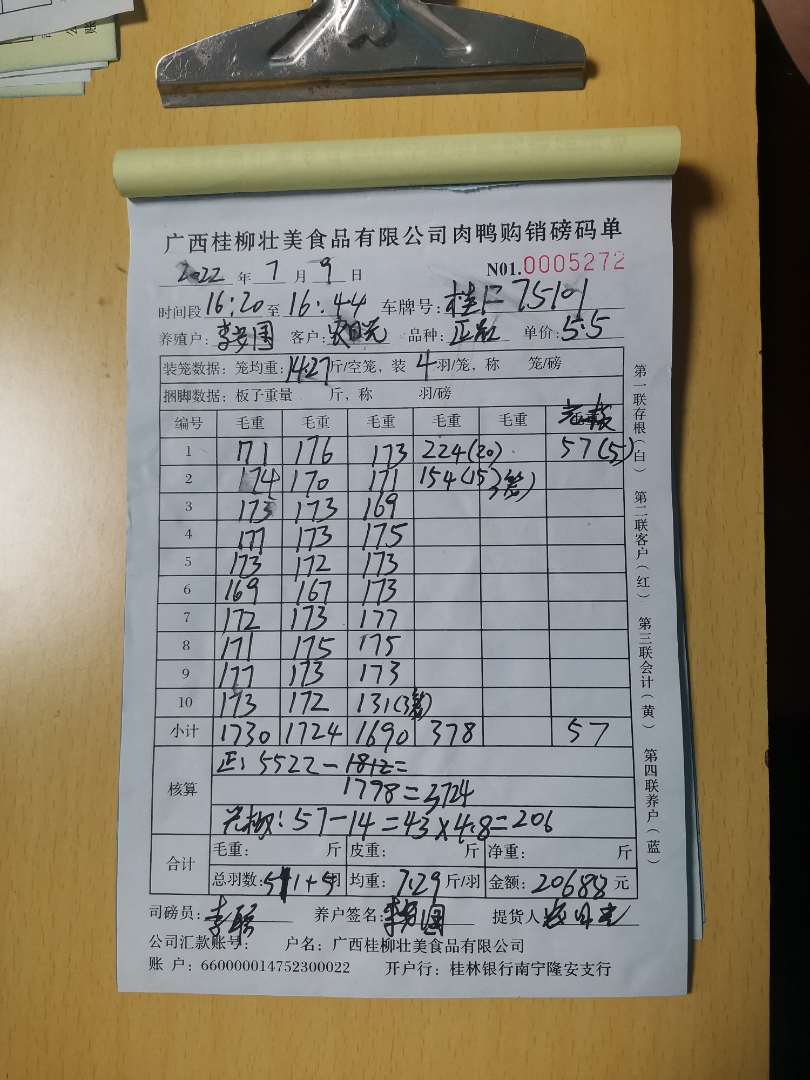 广西桂柳壮美食品有限公司肉鸭购销磅码单
2022 年 7 月 9 日 N01.0005272
时间段 16:20 至 16:44 车牌号: 桂 75101
养殖户: 李 国 客户: 品种: 正 单价: 5.5
装笼数据: 笼均重: 14.27 斤/空笼, 装 4 羽/笼, 称 笼/磅
捆脚数据: 板子重量 斤, 称 羽/磅
编号 毛重 毛重 毛重 毛重 毛重
1 171 176 173 224(20) 57(5)
2 174 170 171 154(15)3笼)
3 173 173 169
4 177 173 175
5 173 172 173
6 169 167 173
7 172 173 177
8 171 175 175
9 177 173 173
10 173 172 131(3笼)
小计 1730 1724 1690 378 57
核算 正: 5522-1812=
1798=3724
57-14=43×4.8=206
合计 毛重: 斤 皮重: 斤 净重: 斤
总羽数: 511+5羽 均重: 7.29 斤/羽 金额: 20688 元
司磅员: 李 养户签名: 李 国 提货人
公司汇款账号: 户名: 广西桂柳壮美食品有限公司
账 户: 660000014752300022 开户行: 桂林银行南宁隆安支行
第一联存根(白) 第二联客户(红) 第三联会计(黄) 第四联养户(蓝)